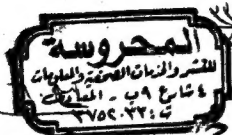 المحروسة
للنشر والخدمات الصحفية والمعلومات
٤ شارع ٩ب - المعادى
ت : ٣٧٥٢٠٣٣